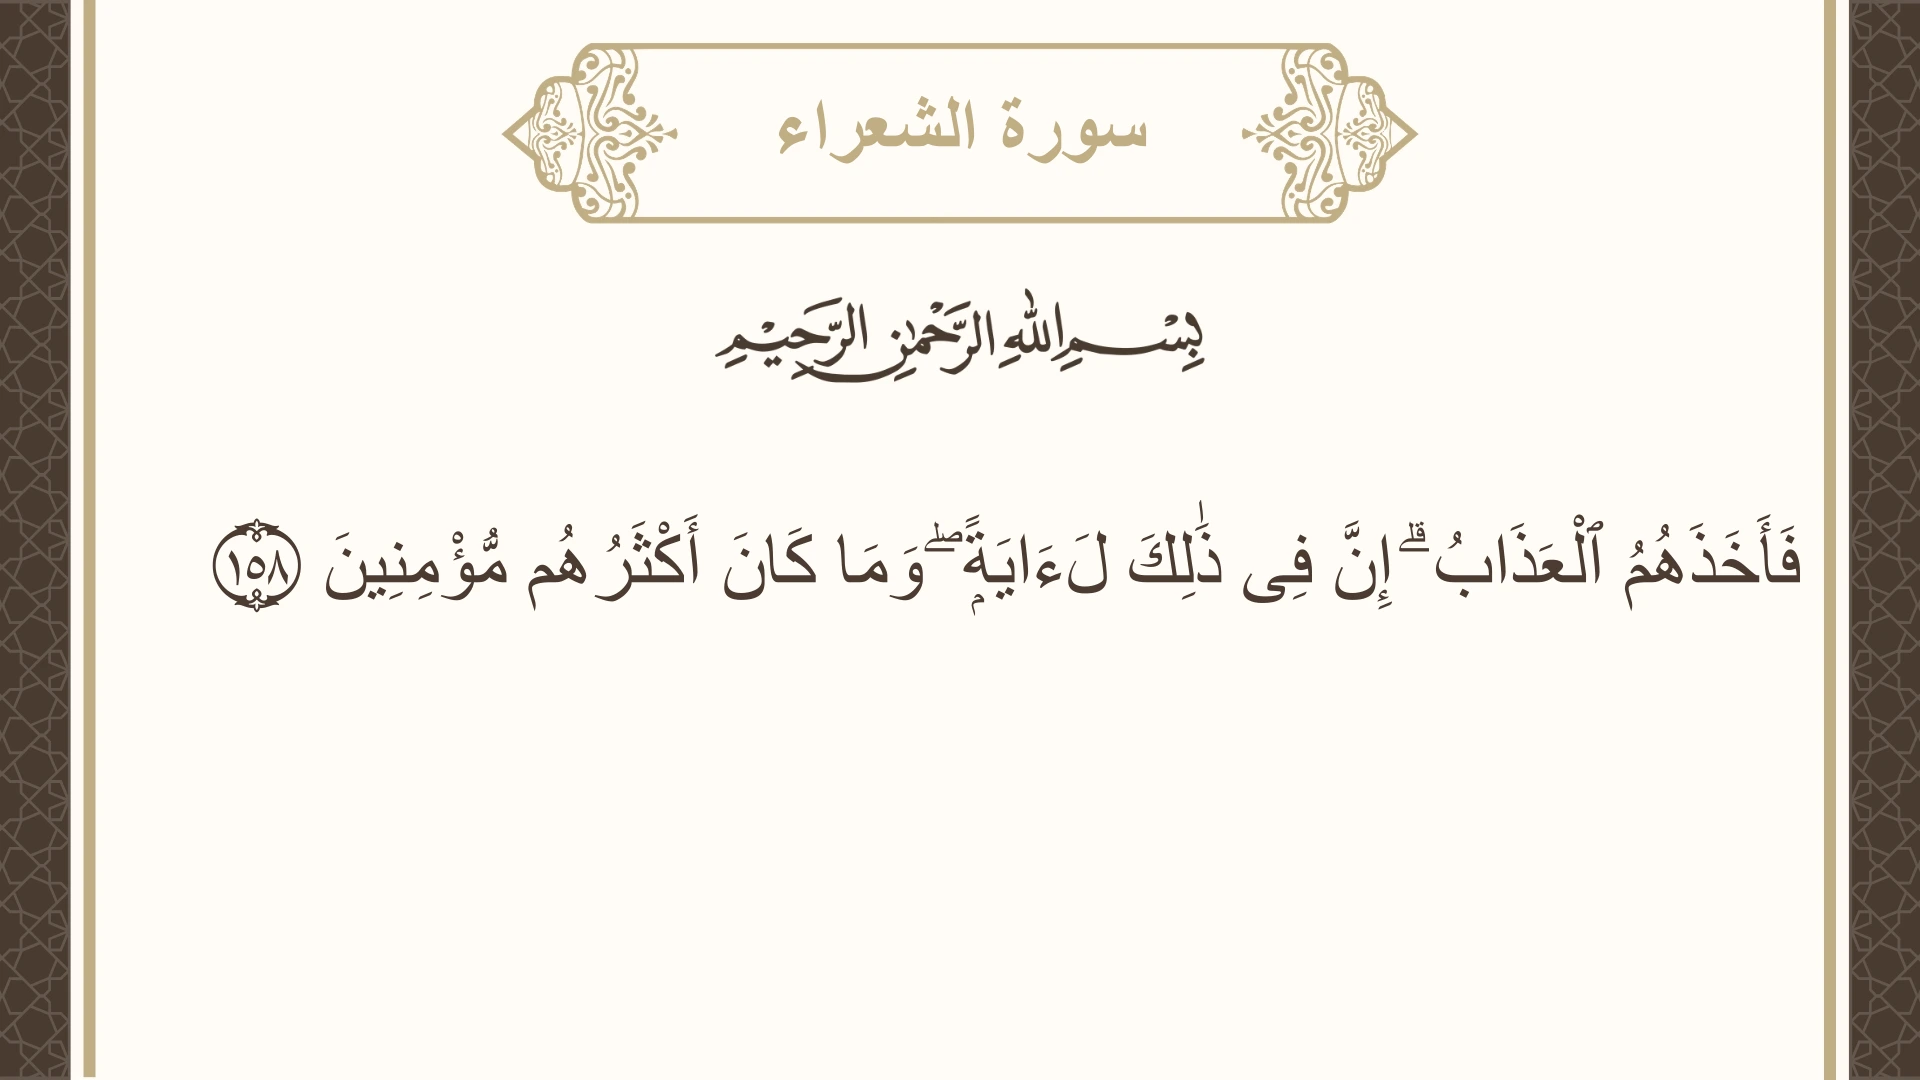 سورة الشعراء
بِسْمِ اللهِ الرَّحْمٰنِ الرَّحِيْمِ
فَأَخَذَهُمُ ٱلْعَذَابُ ۗ إِنَّ فِى ذَٰلِكَ لَءَايَةًۭ ۖ وَمَا كَانَ أَكْثَرُهُم مُّؤْمِنِينَ ١٥٨